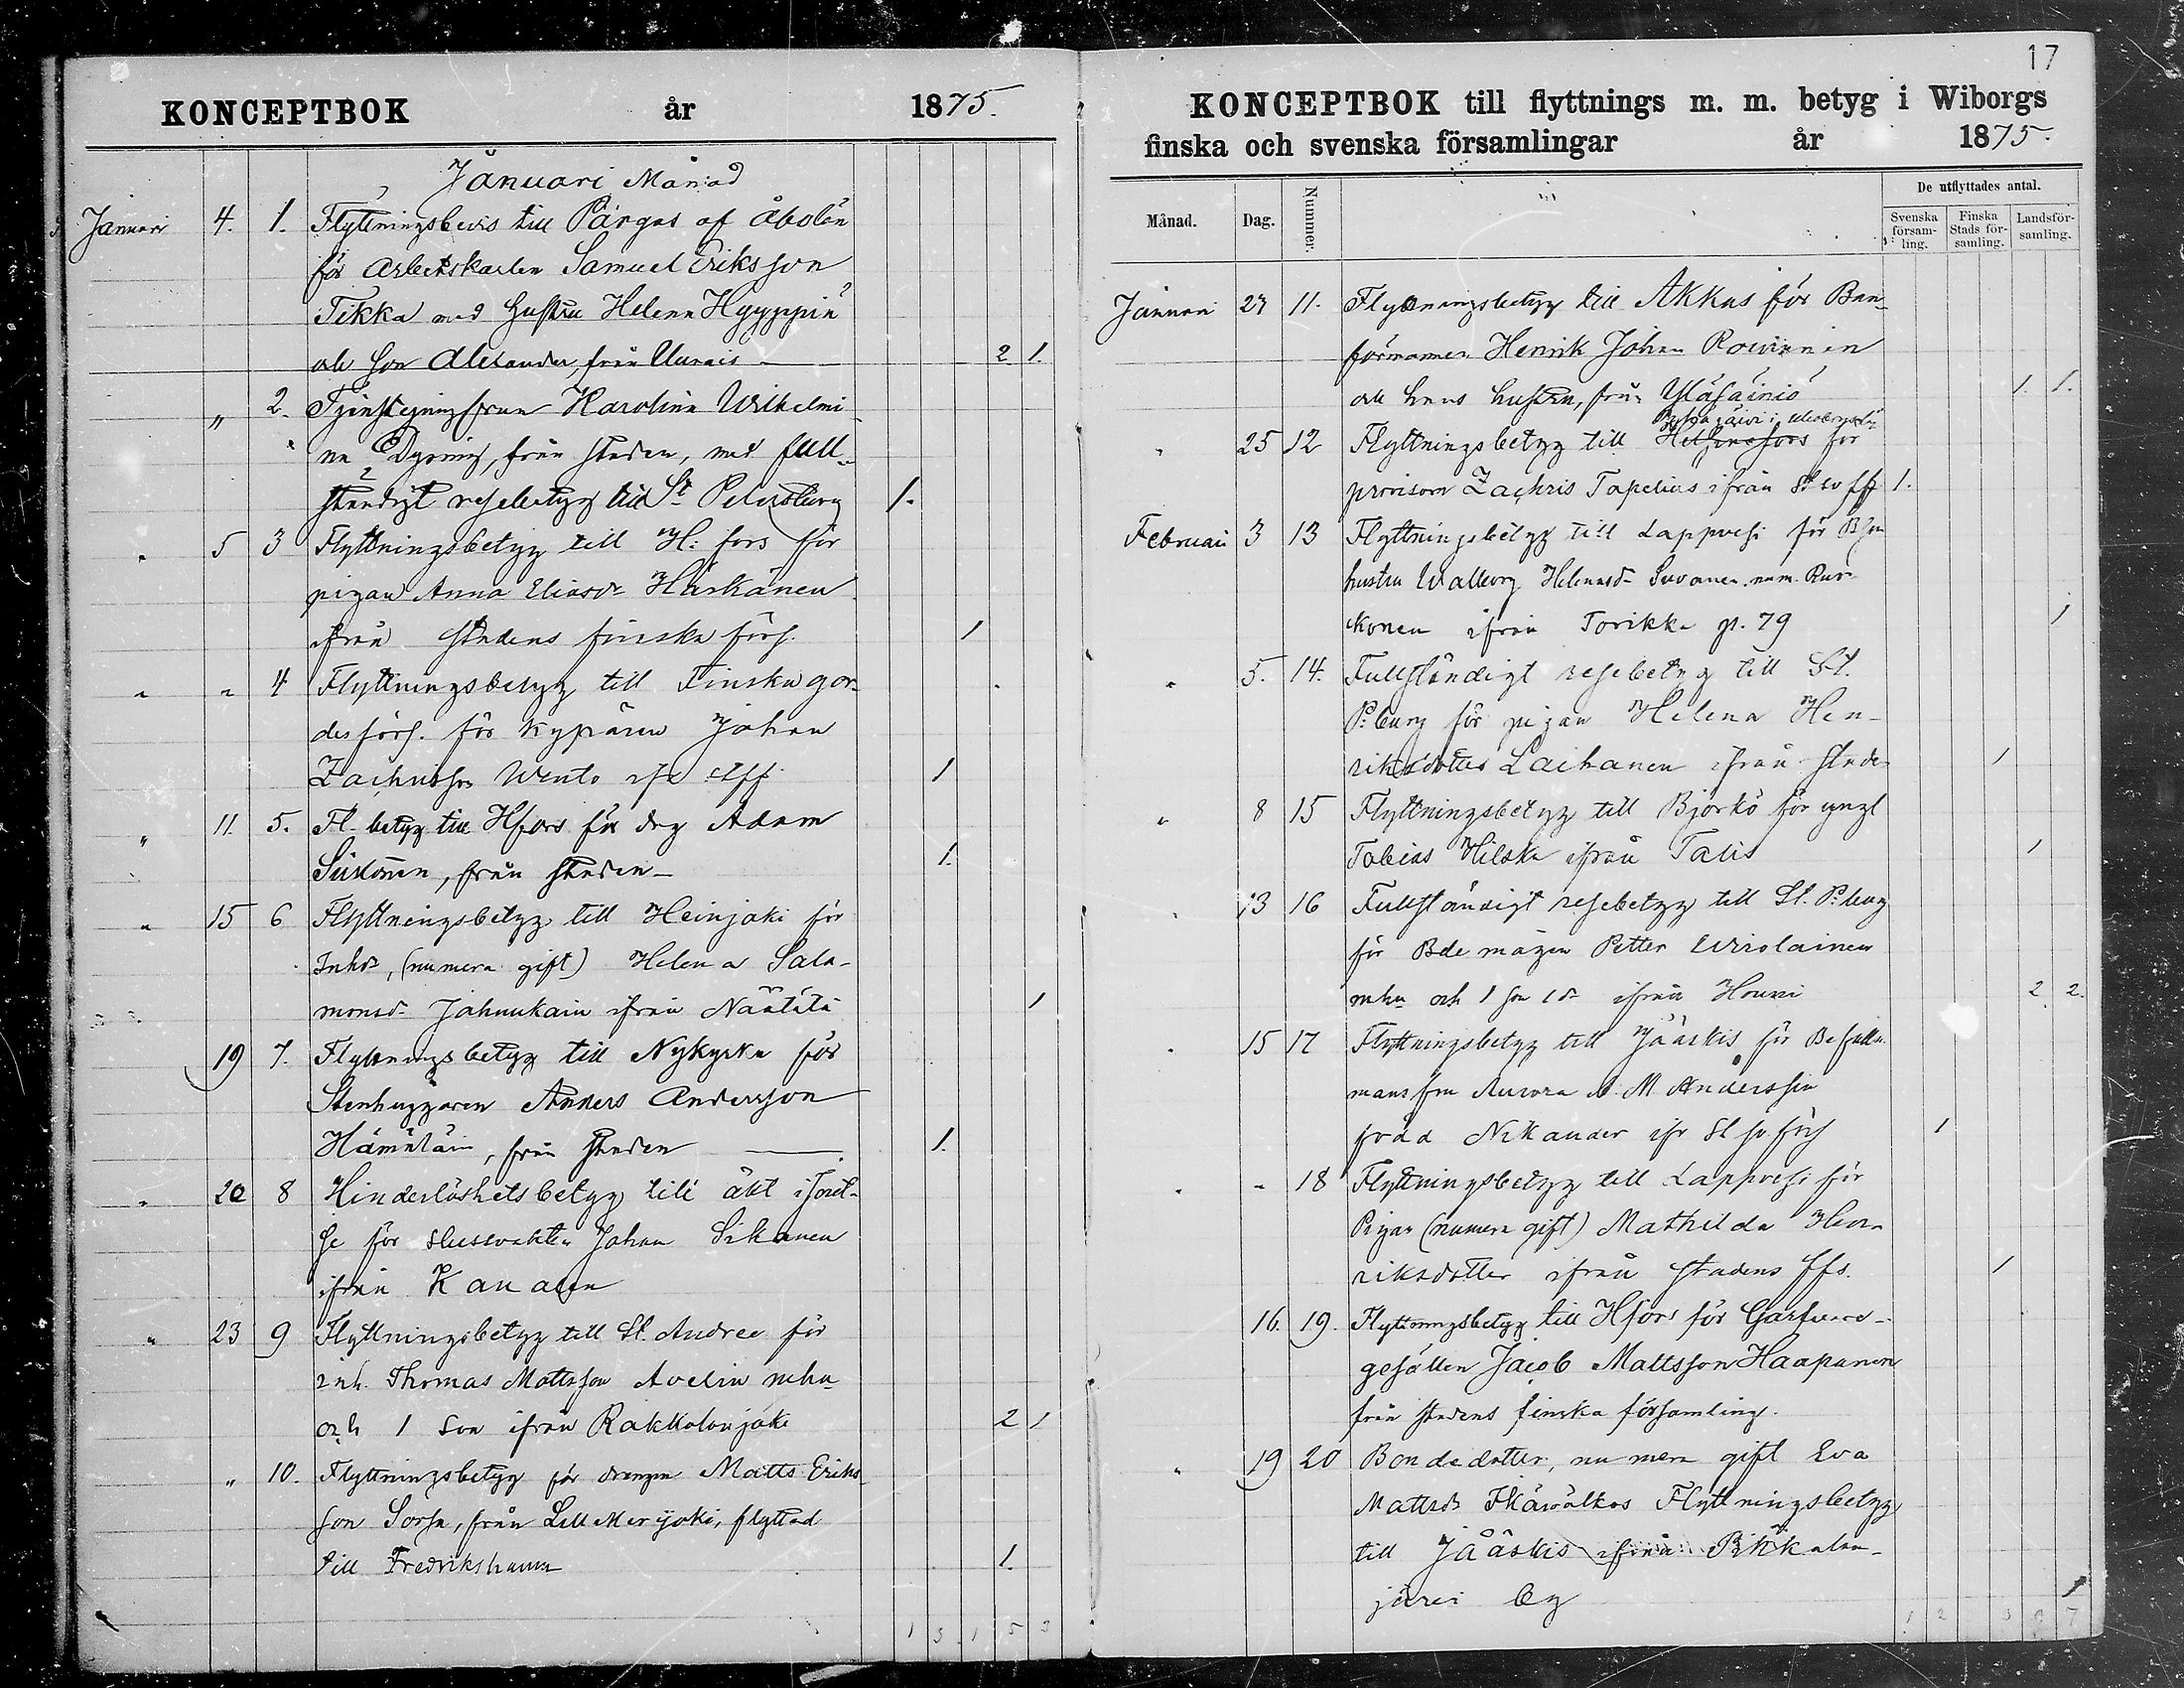 KONCEPTBOK år 1875.
Januari Månad
Januari 4. 1. Flyttningsbevis till Pargas af Åbolän
för Arbetskarlen Samuel Eriksson
Tikka med hustru Helena Hyyppiä
och son Alexander, från Uurais 2 1.
„ 2. Karolina Wilhelmi-
na Dyring, från staden, med full-
ständigt resebetyg till St Petersburg 1.
„ 5 3 Flyttningsbetyg till H:fors för
pigan Anna Eliasdr Härkänen
ifrån stadens finska förs. 1
„ „ 4 Flyttningsbetyg till Finska gar-
desförs. för kyparen Johan
Zachrisson Wento 1
„ 11. 5. Fl. betyg till Hfors för drg Adam
Siikonen, från staden 1.
„ 15 6 Flyttningsbetyg till Heinjoki för
Inhdr, (numera gift) Helena Salo-
monsdr ifrån Näätälä 1
19 7. Flyttningsbetyg till Nykyrka för
Stenhuggaren Anders Andersson
Hämäläin, från staden 1.
„ 20 8 Hinderlöshetsbetyg till äkt
för slussvakten Johan Sikanen
ifrån Kanalen
„ 23 9 Flyttningsbetyg till St. Andree för
inh. Thomas Mattsson Avelin mhu
och 1 son ifrån Rakkolanjoki 2 1
„ 10. Flyttningsbetyg för drängen Matts Eriks-
son Sorsa, från Lill Merijoki, flyttad
till Fredrikshamn 1.
1 3 1 5 3
17
KONCEPTBOK till flyttnings m. m. betyg i Wiborgs
finska och svenska församlingar år 1875.
Månad. Dag. Nummer. De utflyttades antal.
Svenska församling. Finska Stads församling. Landsförsamling.
Januari 23 11. Flyttningsbetyg till Akkas för Ban-
förmannen Henrik Johan
och hans hustru, från Yläsäiniö 1. 1.
„ 25 12 Flyttningsbetyg till Helsingfors för
provisorn Zachris Topelius ifrån 1.
Februari 3 13 Flyttningsbetyg till Lappvesi för
hustru Walborg Helenasdr Suvanen
konen ifrån Torikka p. 79 1
„ 5. 14. Fullständigt resebetyg till St.
P:burg för pigan Helena Hen-
riksdotter Laihanen ifrån staden 1
„ 8 15 Flyttningsbetyg till Björkö för yngl
Tobias Hilska ifrån Talis 1
„ 13 16 Fullständigt resebetyg till St. P:burg
för Bde mågen Petter Wirolainen
mhu och 1 son 1 dr ifrån Houni 2 2.
„ 15 17 Flyttningsbetyg till Jääskis för Befalln.
mansfru Aurora A. M. Andersson
född Nikander ifr St sv förs 1
„ „ 18 Flyttningsbetyg till Lappvesi för
Pigan (numera gift) Mathilda Hen-
riksdotter ifrån stadens ffs. 1
16. 19. Flyttningsbetyg till Hfors för Garfvare-
gesällen Jacob Mattsson Haapanen
från stadens finska församling.
„ 19 20 Bondedotter, numera gift Eva
Mattsdr Flyttningsbetyg
till Jääskis ifrån
järvi by 1
1 2 3 7